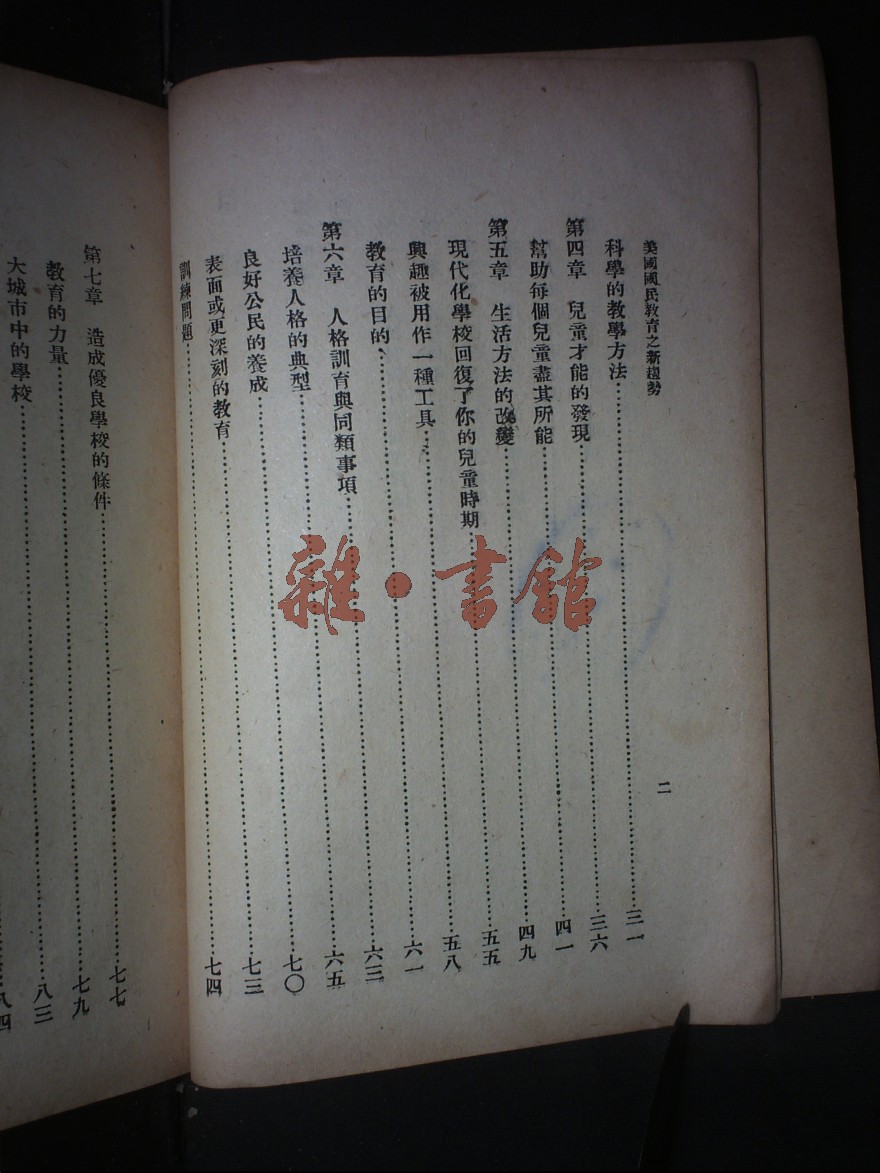 美國國民教育之新趨勢 二
科學的教學方法……三一
第四章 兒童才能的發現……三六
幫助每個兒童盡其所能……四一
第五章 生活方法的改變……四九
現代化學校回復了你的兒童時期……五五
興趣被用作一種工具……五八
教育的目的……六一
第六章 人格訓育與同類事項……六三
培養人格的典型……六五
良好公民的養成……七〇
表面或更深刻的教育……七三
訓練問題……七四
第七章 造成優良學校的條件……七七
教育的力量……七九
大城市中的學校……八三
八四
雜·書館